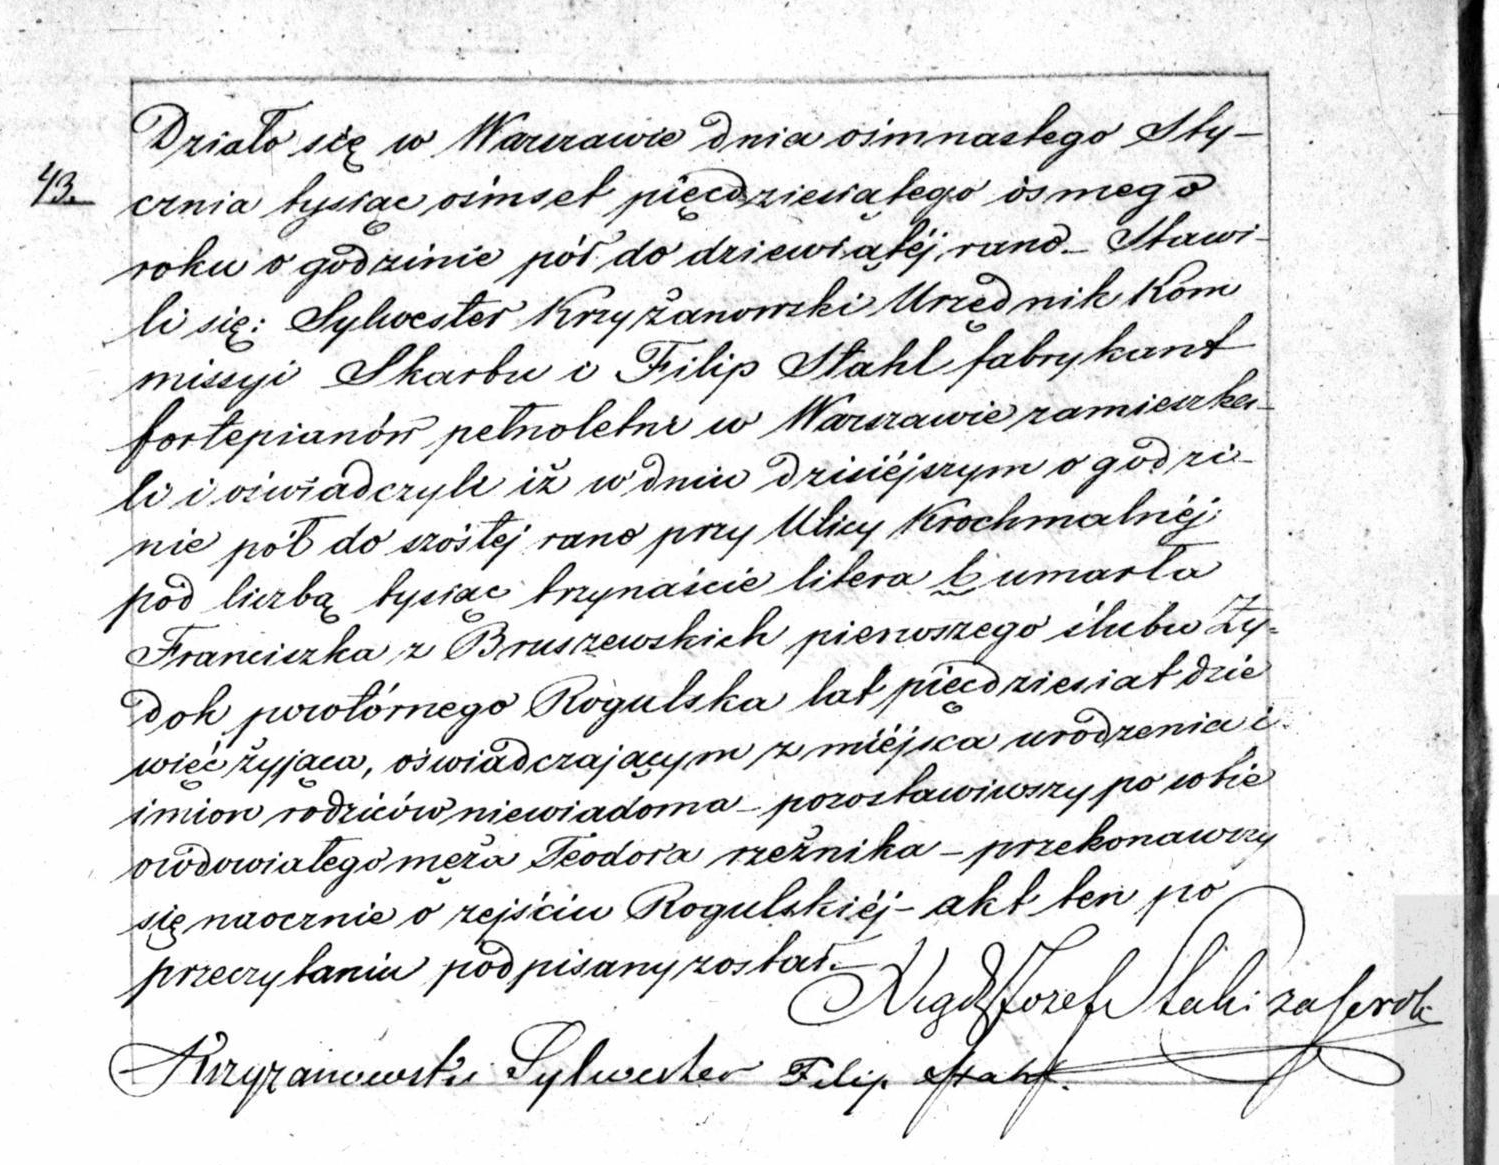 Działo się w Warszawie dnia ośmnastego Sty-
43. cznia tysiąc ośmset pięcdziesiątego ósmego
roku o godzinie pół do dziewiątéj rano_ Stawi-
li się: Sylwester Krzyżanowski Urzędnik Kom
missyi Skarbu i Filip Stahl fabrykant
fortepianów pełnoletni w Warszawie zamieszka-
li i oświadczyli iż w dniu dzisiéjszym o godzi-
nie pół do szóstéj rano przy Ulicy Krochmalnéj
pod liczbą tysiąc trzynaście litera b umarła
Franciszka z Bruszewskich pierwszego ślubu Ży-
dok powtórnego Rogulska lat pięcdziesiat dzie
więć żyjąca, oświadczającym z miéjsca urodzenia i
imion rodziców niewiadoma_ pozostawiwszy po sobie
owdowiałego męża Teodora rzeźnika – przekonawszy
się naocznie o zejściu Rogulskiéj – akt ten po
przeczytaniu podpisany został._
Józef
Krzyżanowski Sylwester Filip Stahl.